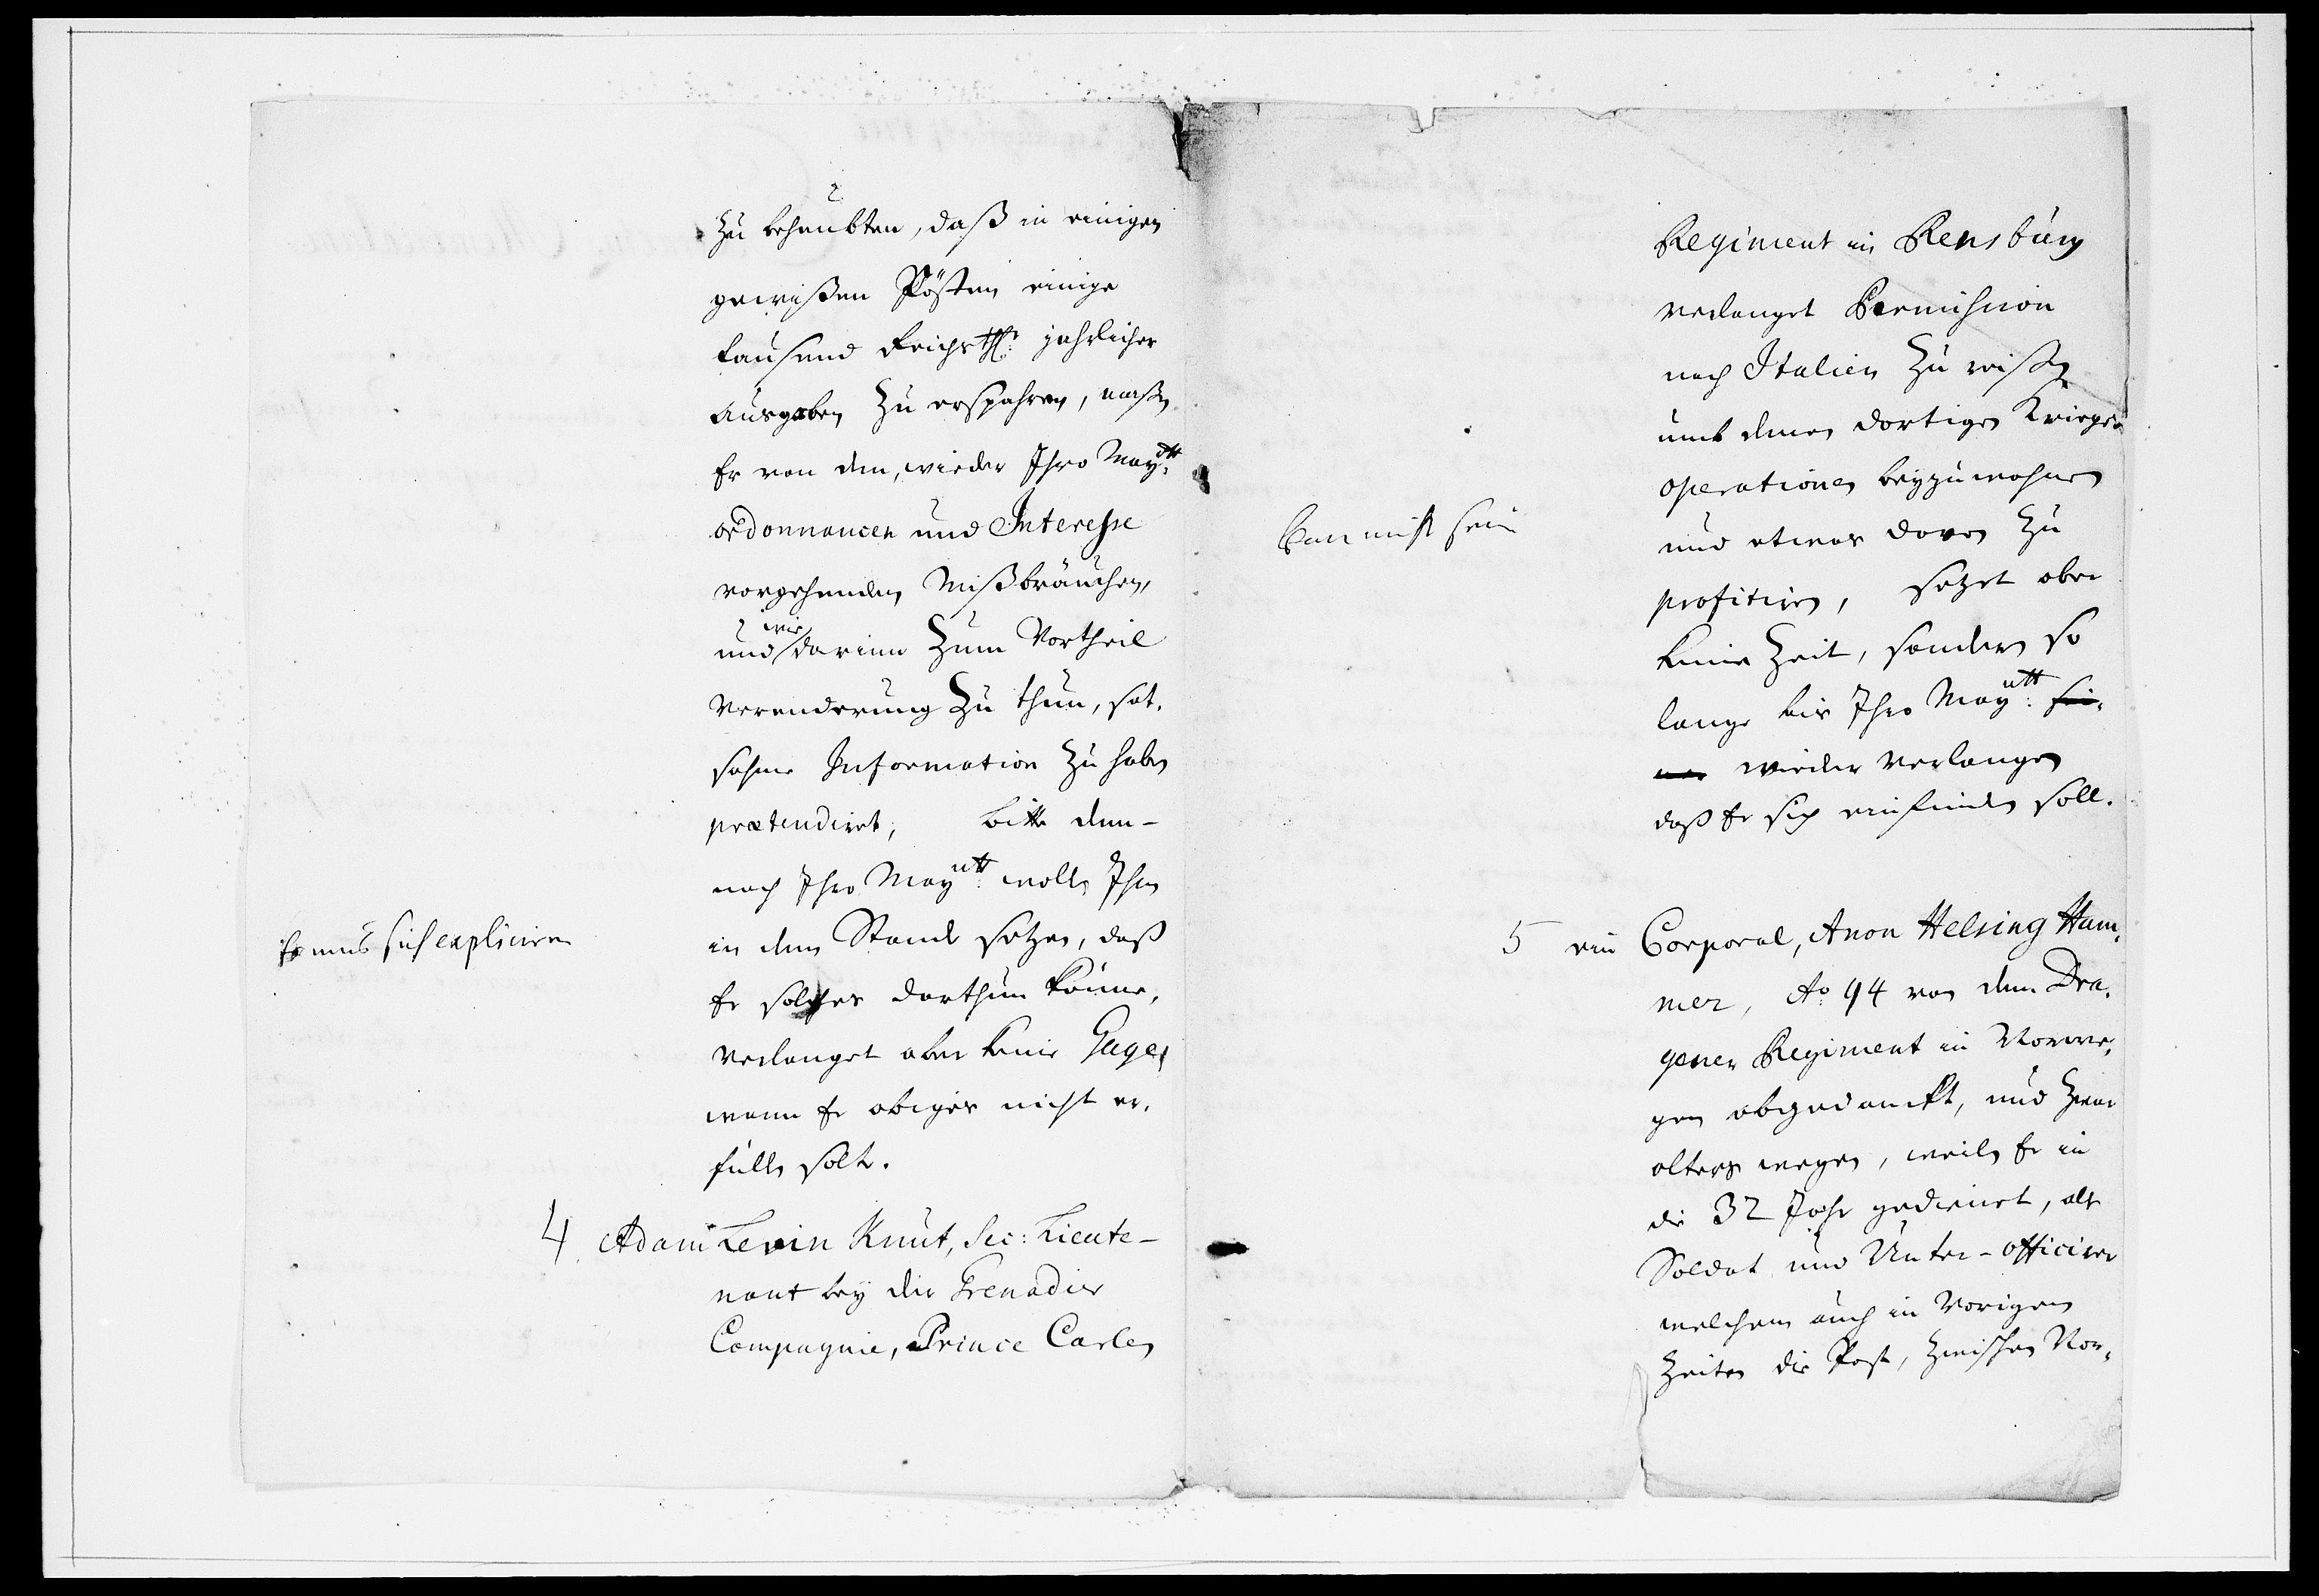 zu behaubten, daß in einigen
gewißen Pösten einige
tausend Reichsthlr: jahrlicher
Ausgaben zu erspahren, maßen
Er von den, wieder Ihro Maytt:
ordonnancen und Interesse
vorgehenden Mißbräuchen,
und wie darinn zum Vortheil
Verenderung zu thun, sat-
sahme Information zu haben
prætendiret, bitte dem-
nach Ihro Maytt: wolle Ihn
Er mus sich expliciren
in den Stande setzen, daß
Er solches darthun könne,
verlanget aber keine Gage,
wann Er obiges nicht er-
füllen solte.
4. Adam Levin Knut, Sec: Lieute-
nant bey die Grenadier
Compagnie, Prince Carlen
Regiment in Rensburg
verlanget Permission
nach Italien zu reißen
umb denen dortigen Krieges-
operationen beyzuwohnen
Kan nicht sein
und etwas davon zu
profitiren, setzet aber
keine Zeit, sondern so
lange bis Ihro Maytt: sei-
nen wieder verlangen
daß Er sich einfinden soll.
5 ein Corporal, Anon Helsing Ham-
mer, Ao: 94 von dem Dra-
goner Regiment in Norwe-
gen abgedanckt, und zwar
alters wegen, weilen Er in
die 32 Jahr gedienet, als
Soldat und Unter-officirer
welchem auch in Vorigen
Zeiten die Post, zwischen Nor-